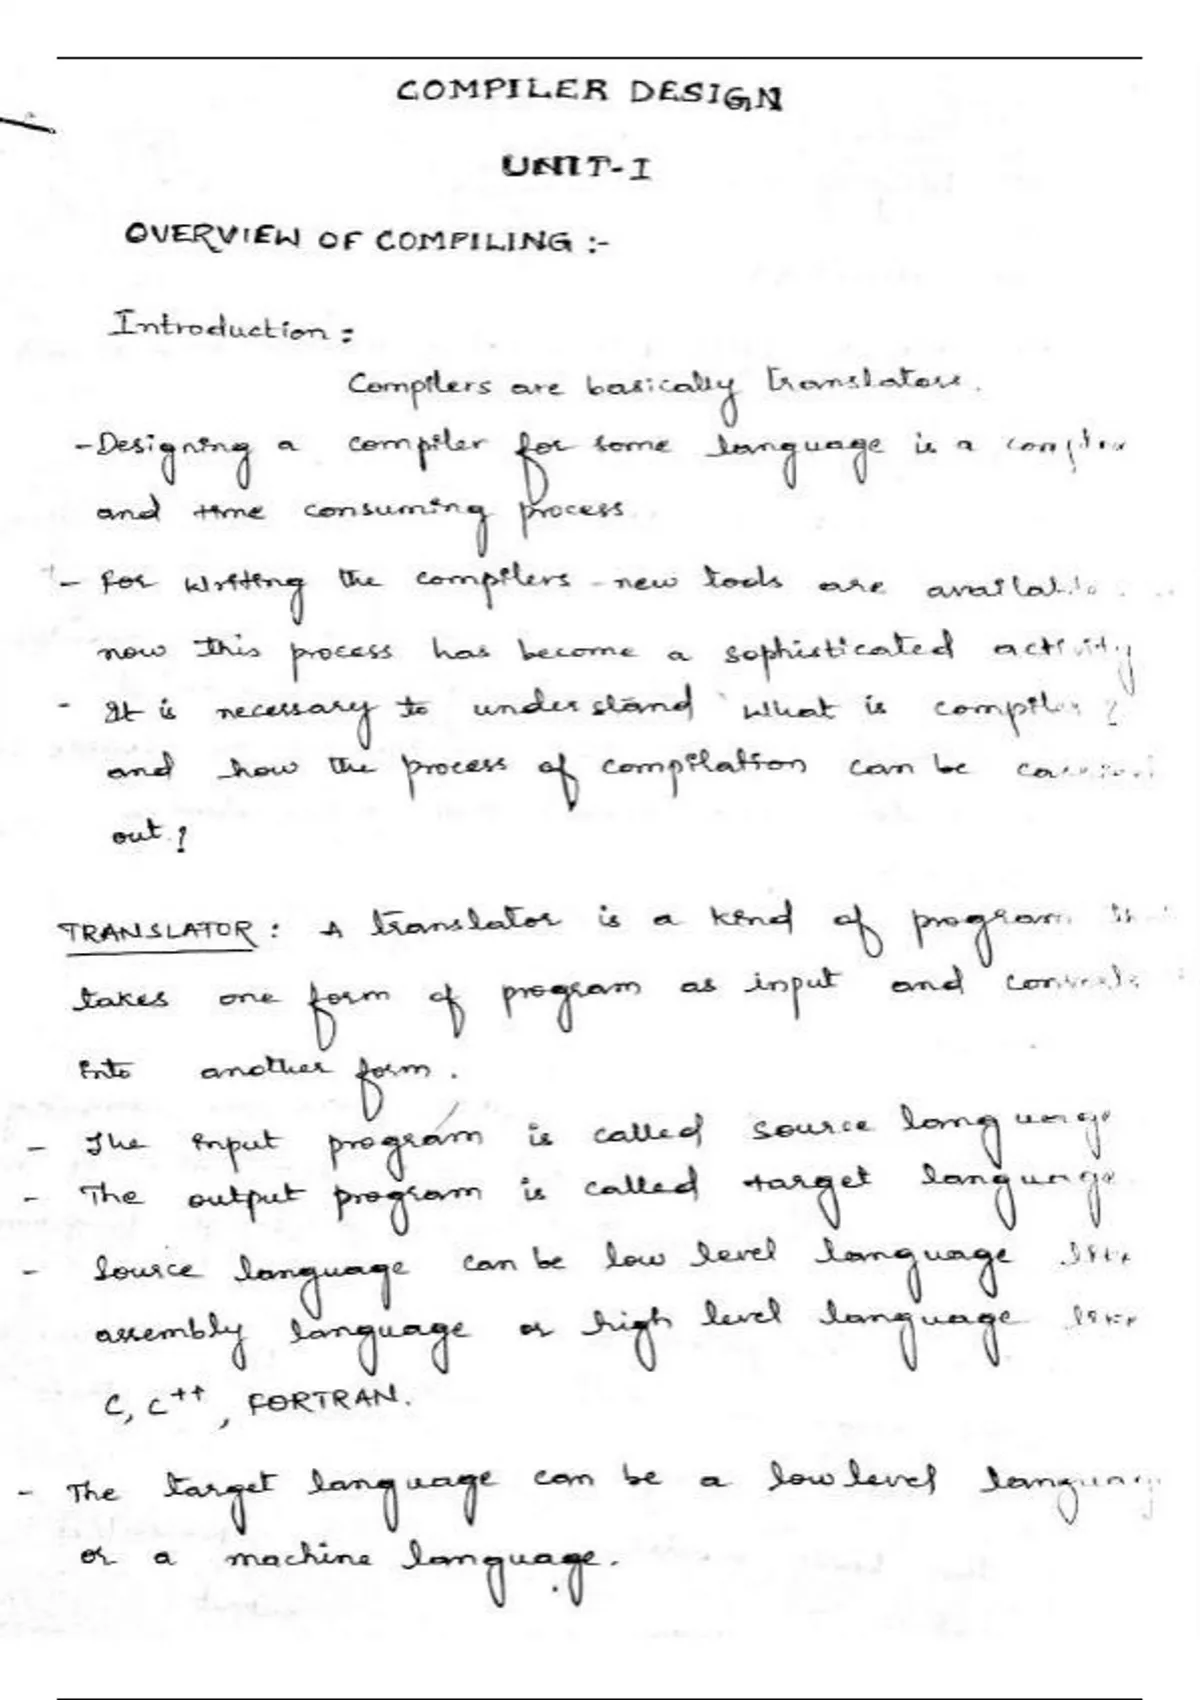 COMPILER DESIGN
UNIT-I
OVERVIEW OF COMPILING :-
Introduction :
Compilers are basically translators.
- Designing a compiler for some language is a complex
and time consuming process.
- For writing the compilers new tools are available
now this process has become a sophisticated activity
- It is necessary to understand what is compiler ?
and how the process of compilation can be carried
out ?
TRANSLATOR : A translator is a kind of program that
takes one form of program as input and converts
into another form.
- The input program is called source language
- The output program is called target language
- Source language can be low level language like
assembly language or high level language like
C, C++, FORTRAN.
- The target language can be a low level language
or a machine language.